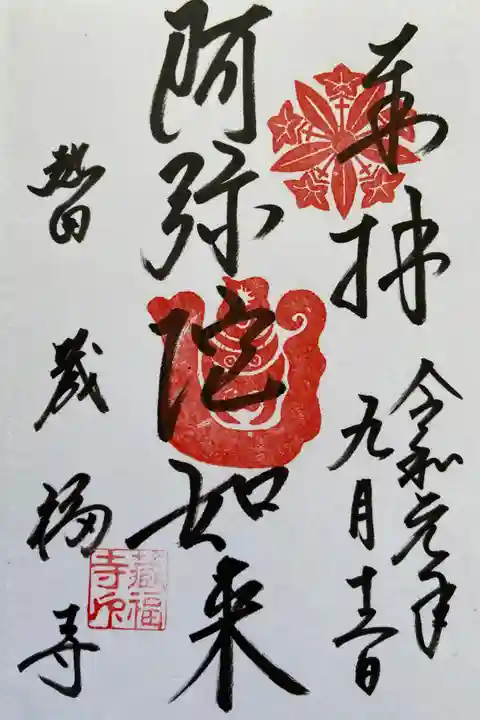 奉拝
令和元年
九月 日
阿弥陀如来
田 蔵福寺
蔵福
寺印